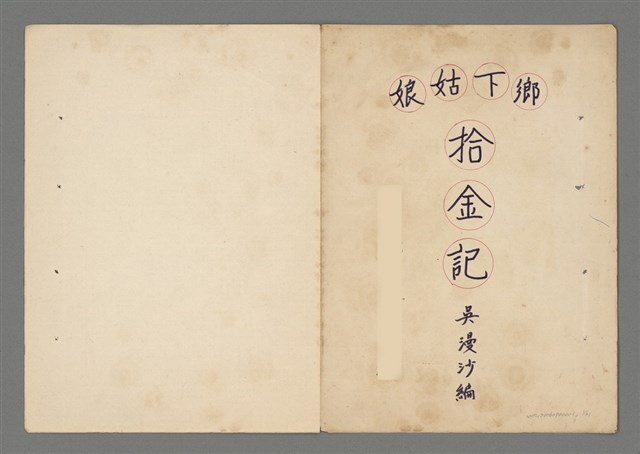 鄉下姑娘
拾金記
吳漫沙編